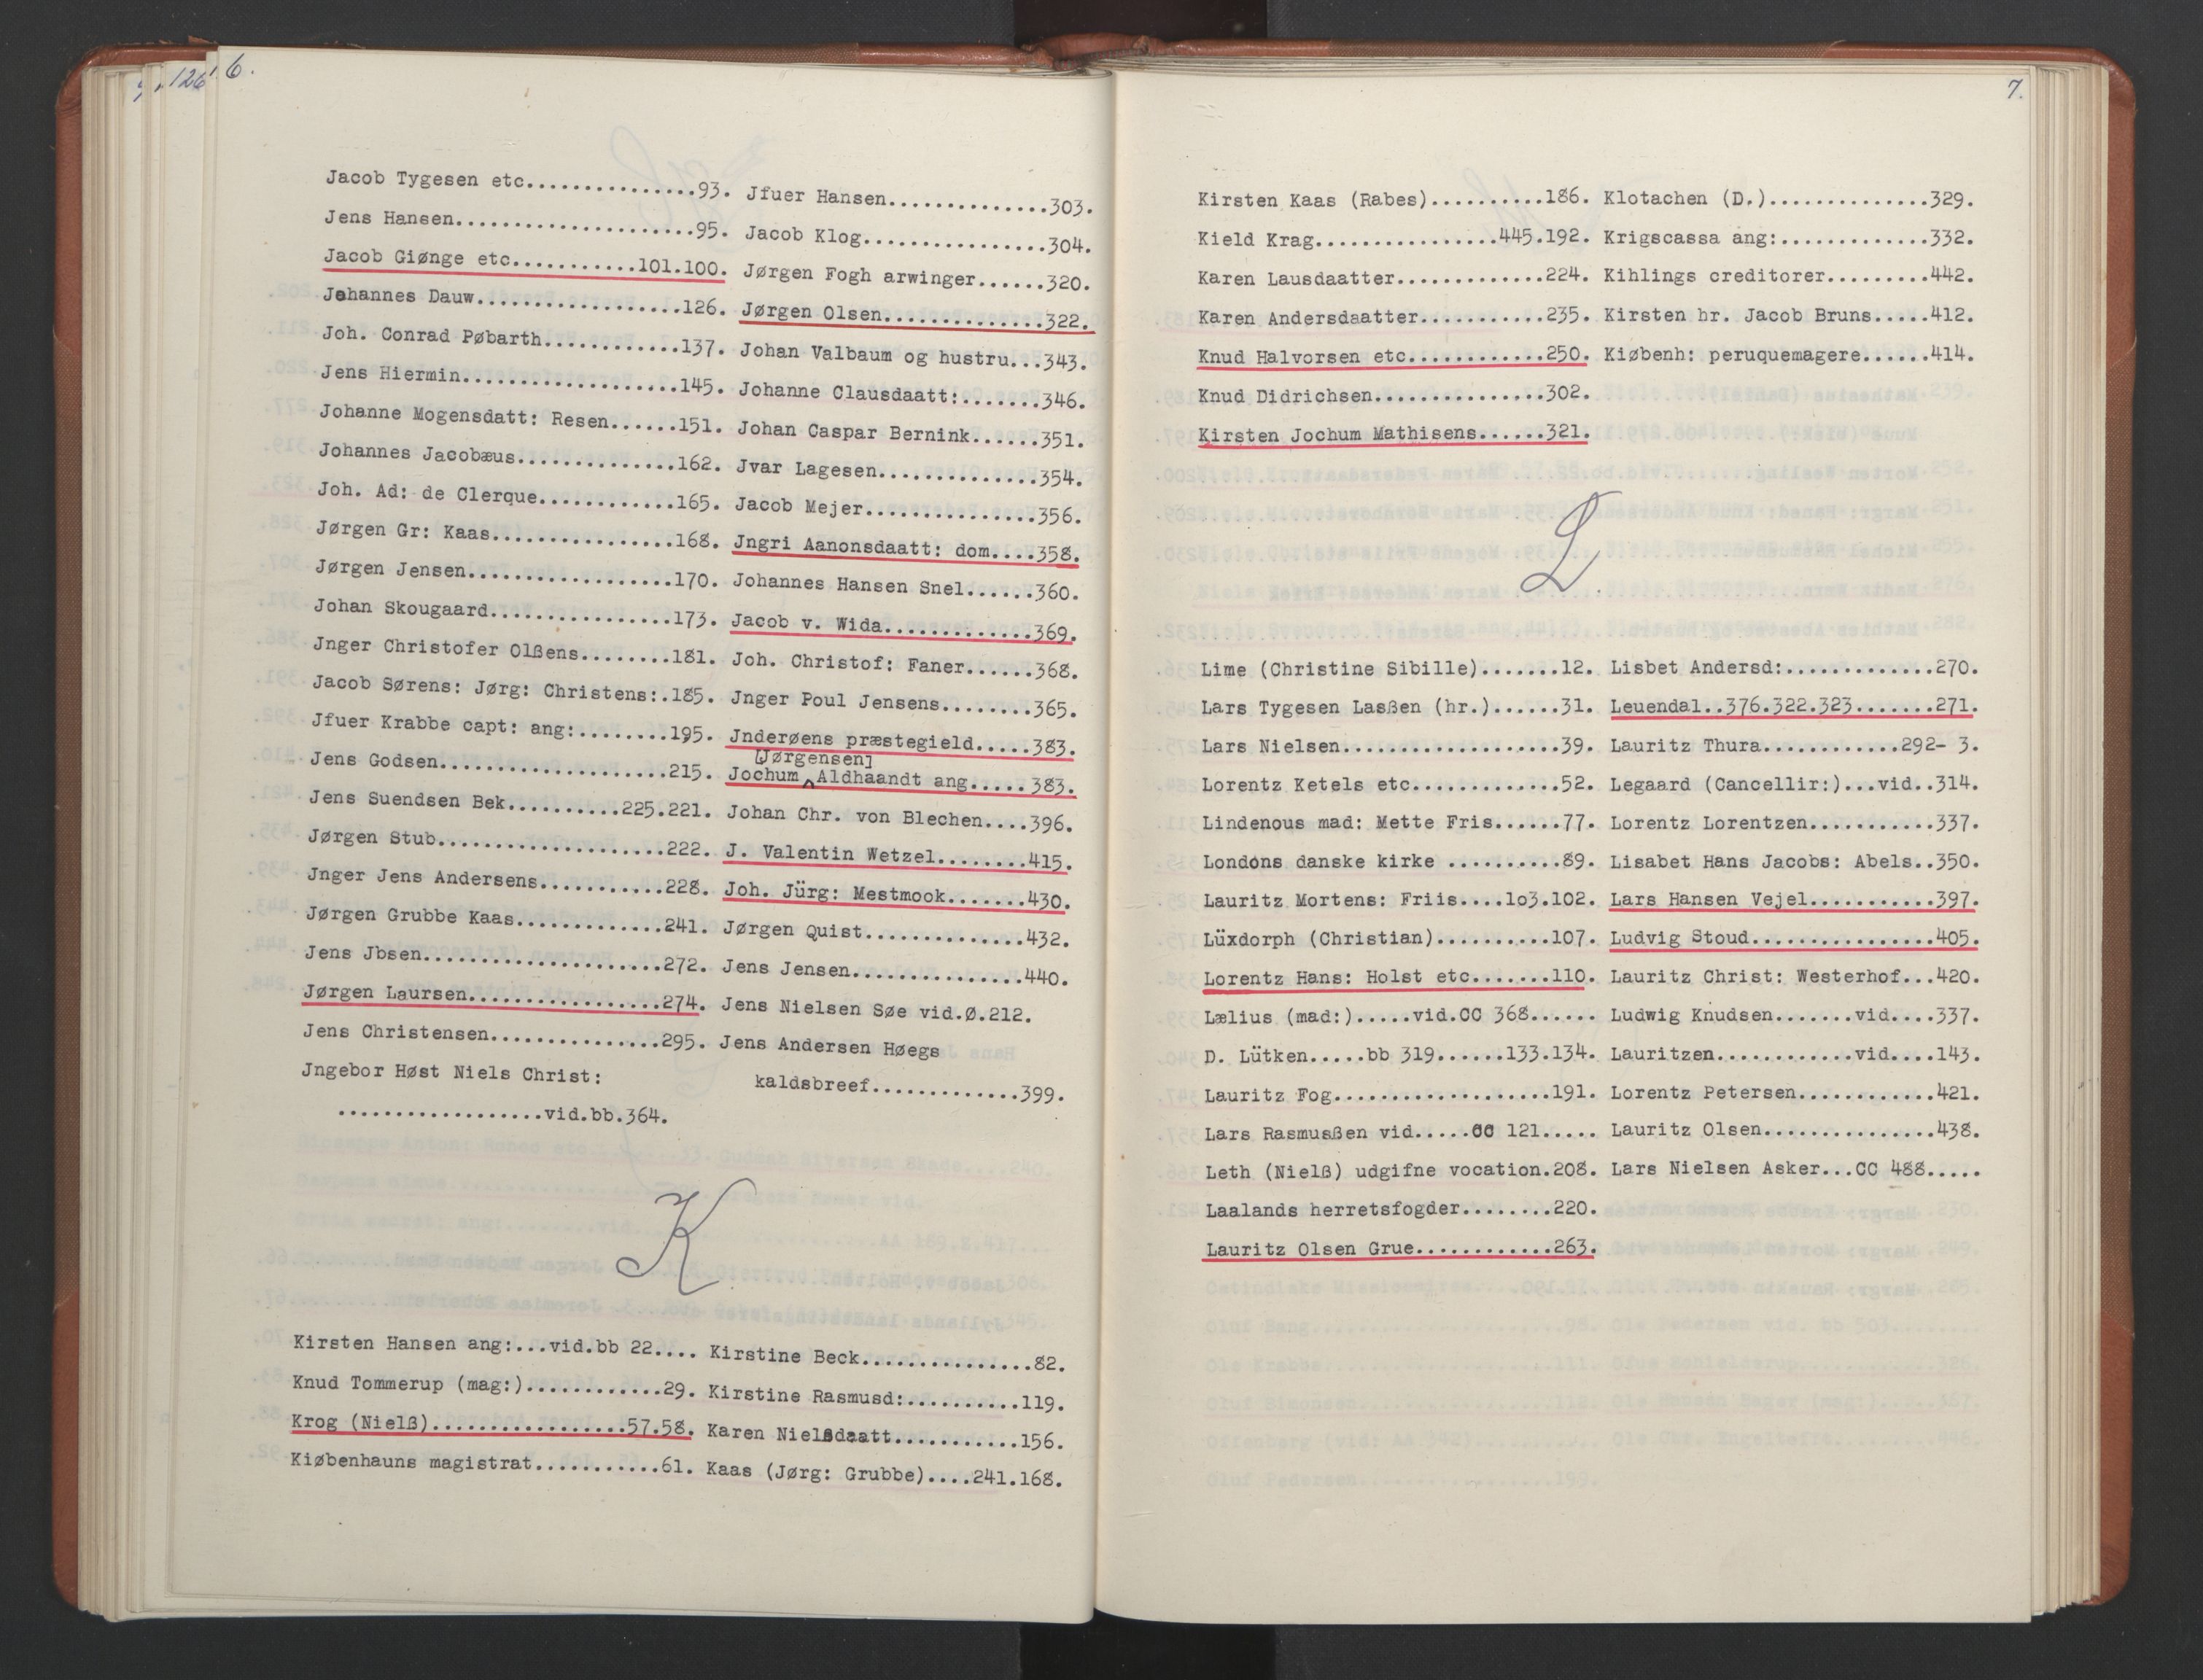 126
6.
Jacob Tygesen etc...............93.
Jens Hansen.....................95.
Jacob Giønge etc...........101.100.
Johannes Dauw..................126.
Joh. Conrad Pøbarth............137.
Jens Hiermin...................145.
Johanne Mogensdatt: Resen......151.
Johannes Jacobæus..............162.
Joh. Ad: de Clerque............165.
Jørgen Gr: Kaas................168.
Jørgen Jensen..................170.
Johan Skougaard................173.
Jnger Christofer Olßens........181.
Jacob Sørens: Jørg: Christens:.185.
Jfuer Krabbe capt: ang:........195.
Jens Godsen....................215.
Jens Suendsen Bek..........225.221.
Jørgen Stub....................222.
Jnger Jens Andersens...........228.
Jørgen Grubbe Kaas.............241.
Jens Jbsen.....................272.
Jørgen Laursen.................274.
Jens Christensen...............295.
Jngebor Høst Niels Christ:
..................vid.bb.364.
Jfuer Hansen..............303.
Jacob Klog................304.
Jørgen Fogh arwinger......320.
Jørgen Olsen..............322.
Johan Valbaum og hustru...343.
Johanne Clausdaatt:.......346.
Johan Caspar Bernink......351.
Jvar Lagesen..............354.
Jacob Mejer...............356.
Jngri Aanonsdaatt: dom....358.
Johannes Hansen Snel......360.
Jacob v. Wida.............369.
Joh. Christof: Faner......368.
Jnger Poul Jensens........365.
Jnderøens præstegield.....383.
[Jørgensen]
Jochum Aldhaandt ang.....383.
Johan Chr. von Blechen....396.
J. Valentin Wetzel........415.
Joh. Jürg: Mestmook.......430.
Jørgen Quist..............432.
Jens Jensen...............440.
Jens Nielsen Søe vid.Ø.212.
Jens Andersen Høegs
kaldsbreef.............399.
K
Kirsten Hansen ang:...vid.bb 22....
Knud Tommerup (mag:)............29.
Krog (Nielß).................57.58.
Kiøbenhauns magistrat...........61.
Kirstine Beck...............82.
Kirstine Rasmusd:..........119.
Karen Nielsdaatt...........156.
Kaas (Jørg: Grubbe)....241.168.
7.
Kirsten Kaas (Rabes)..........186.
Kield Krag................445.192.
Karen Lausdaatter.............224.
Karen Andersdaatter...........235.
Knud Halvorsen etc............250.
Knud Didrichsen...............302.
Kirsten Jochum Mathisens......321.
Klotachen (D.)..............329.
Krigscassa ang:.............332.
Kihlings creditorer.........442.
Kirsten hr. Jacob Bruns.....412.
Kiøbenh: peruquemagere......414.
L
Lime (Christine Sibille).......12.
Lars Tygesen Lasßen (hr.)......31.
Lars Nielsen...................39.
Lorentz Ketels etc.............52.
Lindenous mad: Mette Fris......77.
Londons danske kirke ..........89.
Lauritz Mortens: Friis....1o3.102.
Lüxdorph (Christian)..........107.
Lorentz Hans: Holst etc.......110.
Lælius (mad:).....vid.CC 368......
D. Lütken.....bb 319......133.134.
Lauritz Fog...................191.
Lars Rasmusßen vid.....CC 121.....
Leth (Nielß) udgifne vocation.208.
Laalands herretsfogder........220.
Lauritz Olsen Grue............263.
Lisbet Andersd:.............270.
Leuendal..376.322.323.......271.
Lauritz Thura............292- 3.
Legaard (Cancellir:)...vid..314.
Lorentz Lorentzen...........337.
Lisabet Hans Jacobs: Abels..350.
Lars Hansen Vejel...........397.
Ludvig Stoud................405.
Lauritz Christ: Westerhof...420.
Ludwig Knudsen.......vid....337.
Lauritzen............vid....143.
Lorentz Petersen............421.
Lauritz Olsen...............438.
Lars Nielsen Asker...CC 488.....